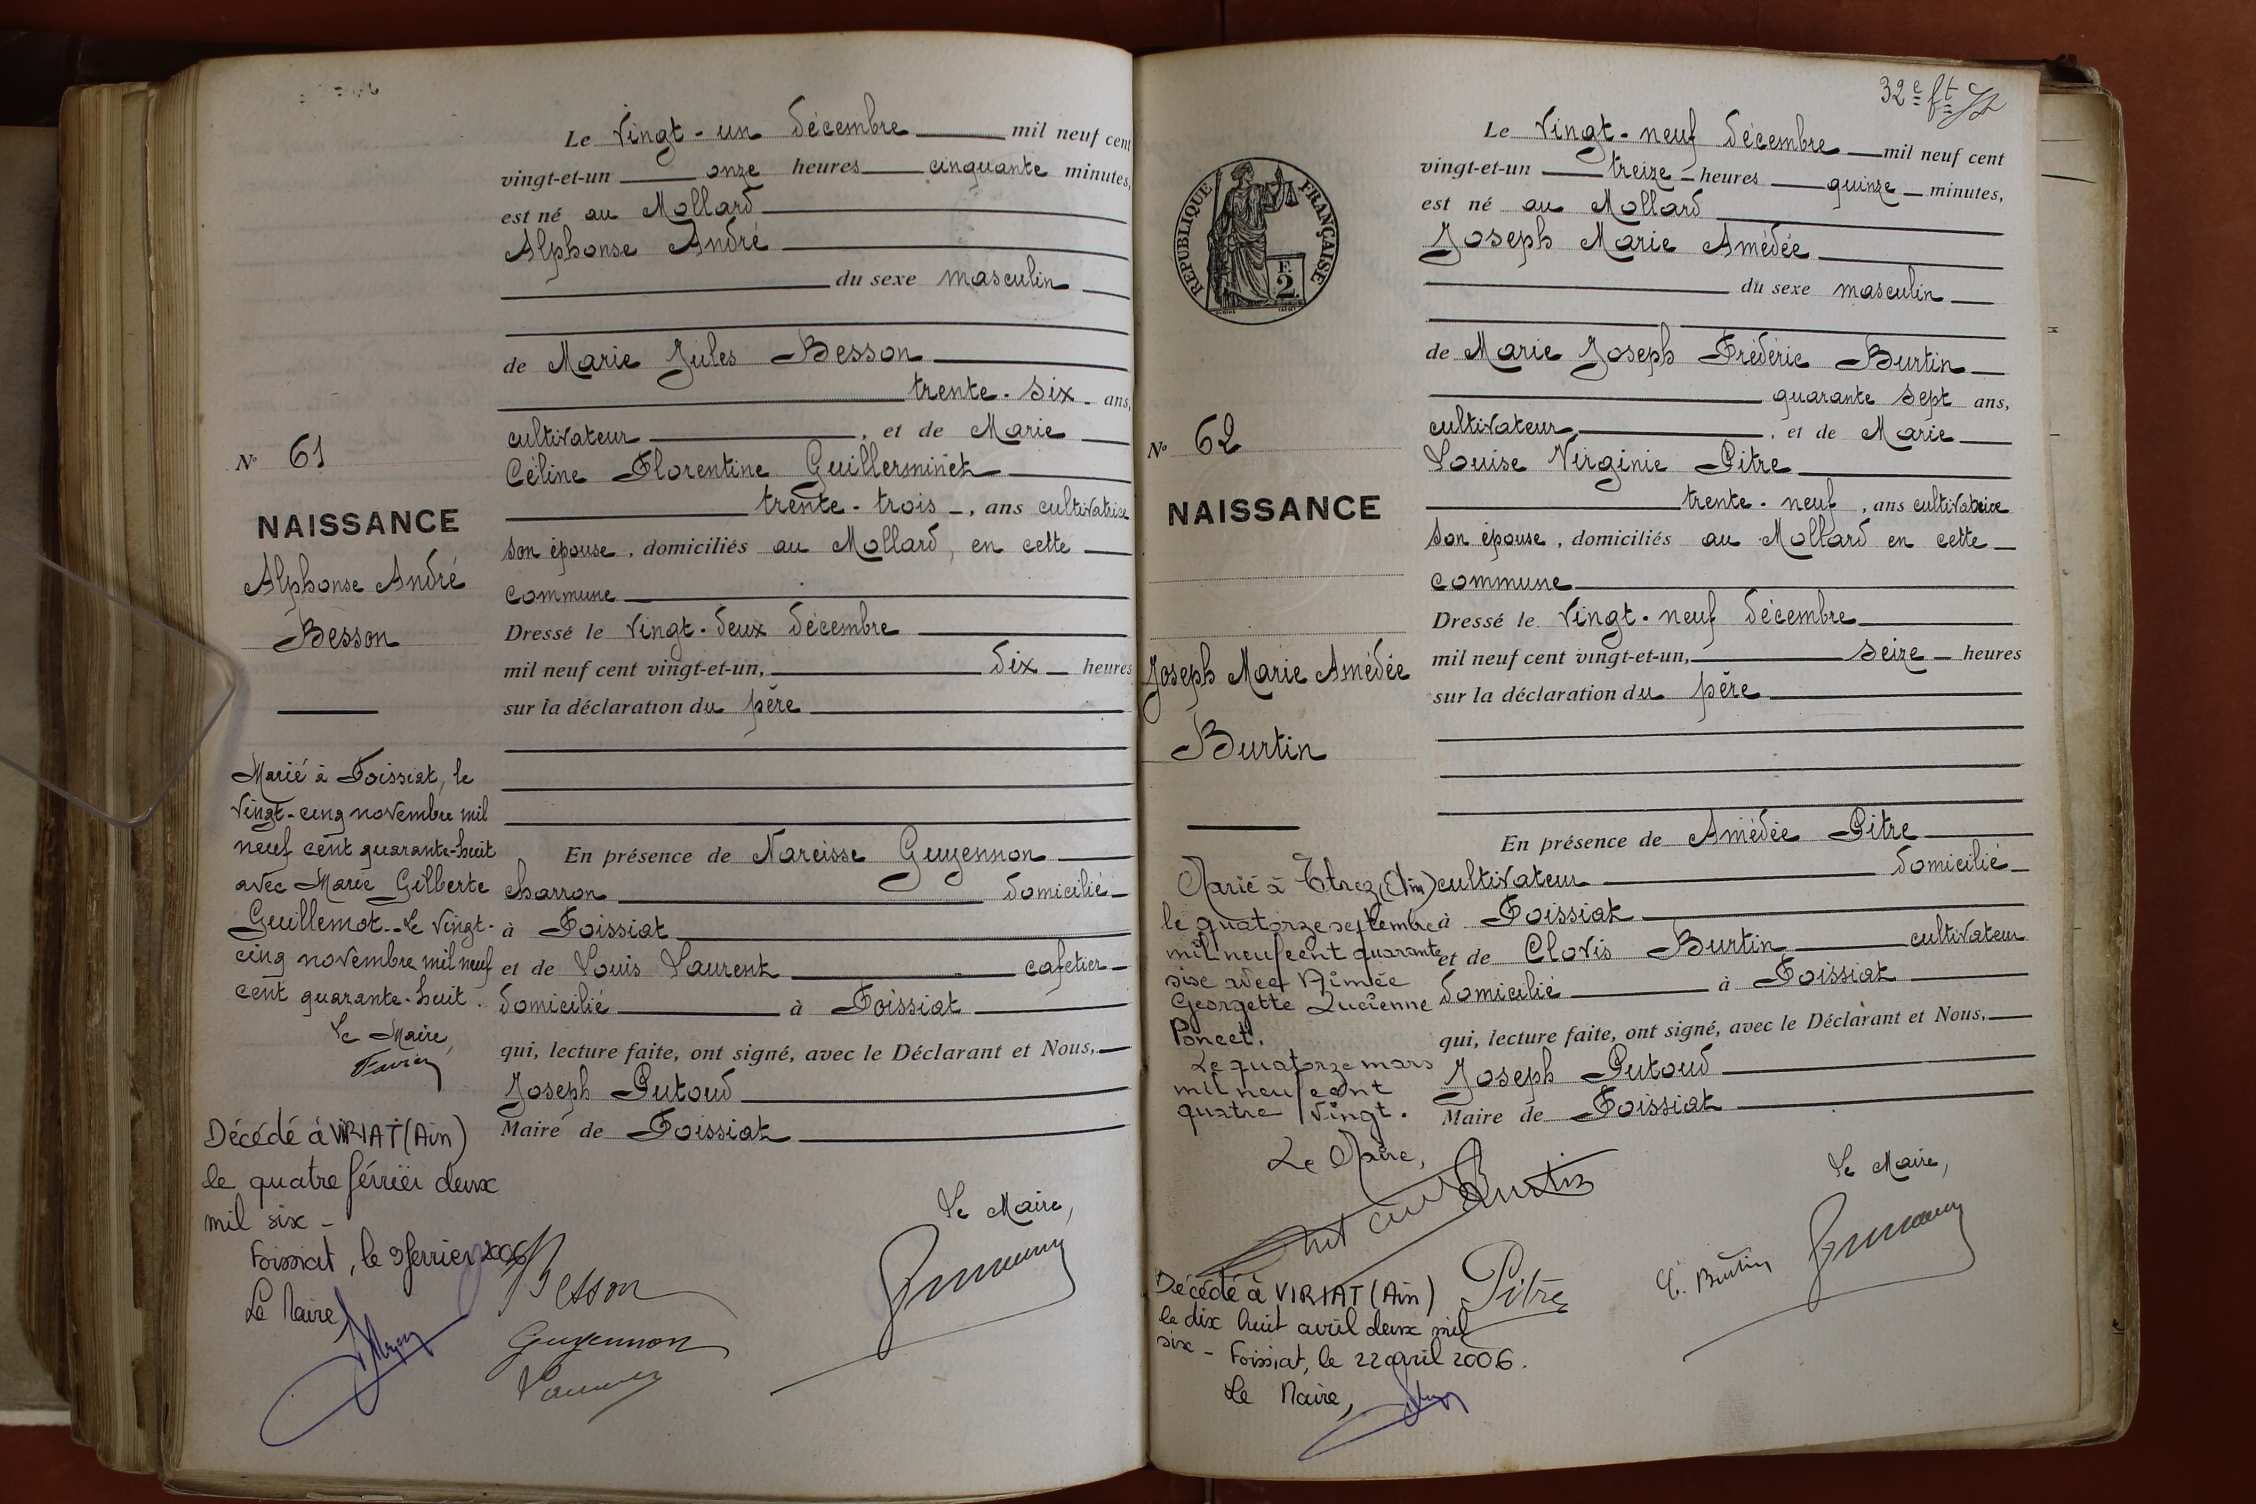 Le Vingt-un décembre mil neuf cent
vingt-et-un onze heures cinquante minutes,
est né au Mollard
Alphonse André
du sexe masculin
de Marie Jules Besson
trente-six ans,
cultivateur, et de Marie
Céline Florentine Guillerminet
trente-trois, ans cultivatrice
son épouse, domiciliés au Mollard, en cette
commune
Dressé le vingt-deux décembre
mil neuf cent vingt-et-un, dix heures
sur la déclaration du père
En présence de Narcisse Guyennon
charron domicilié
à Foissiat
et de Louis Laurent cafetier
domicilié à Foissiat
qui, lecture faite, ont signé, avec le Déclarant et Nous,
Joseph Putoud
Maire de Foissiat
Le Maire,
Besson
Guyennon
Nº 61
NAISSANCE
Alphonse André
Besson
Marié à Foissiat, le
vingt-cinq novembre mil
neuf cent quarante-huit
avec Marie Gilberte
Guillemot. Le vingt-
cinq novembre mil neuf
cent quarante-huit.
Le Maire,
Décédé à VIRIAT (Ain)
le quatre février deux
mil six -
Foissiat, le 9 février 2006
Le Maire
32e ft
Le Vingt-neuf décembre mil neuf cent
vingt-et-un treize heures quinze minutes,
est né au Mollard
Joseph Marie Amédée
du sexe masculin
de Marie Joseph Frédéric Burtin
quarante sept ans,
cultivateur, et de Marie
Louise Virginie Pitre
trente-neuf, ans cultivatrice
son épouse, domiciliés au Mollard en cette
commune
Dressé le Vingt-neuf décembre
mil neuf cent vingt-et-un, seize heures
sur la déclaration du père
En présence de Amédée Pitre
cultivateur domicilié
à Foissiat
et de Clovis Burtin cultivateur
domicilié à Foissiat
qui, lecture faite, ont signé, avec le Déclarant et Nous,
Joseph Putoud
Maire de Foissiat
Le Maire,
Burtin
Pitre
C. Burtin
REPUBLIQUE FRANÇAISE
F.
2
Nº 62
NAISSANCE
Joseph Marie Amédée
Burtin
Marié à Etrez (Ain)
le quatorze septembre
mil neuf cent quarante
six avec Aimée
Georgette Lucienne
Poncet.
Le quatorze mars
mil neuf cent
quatre vingt.
Le Maire,
Décédé à VIRIAT (Ain)
le dix huit avril deux mil
six - Foissiat, le 22 avril 2006.
Le Maire,